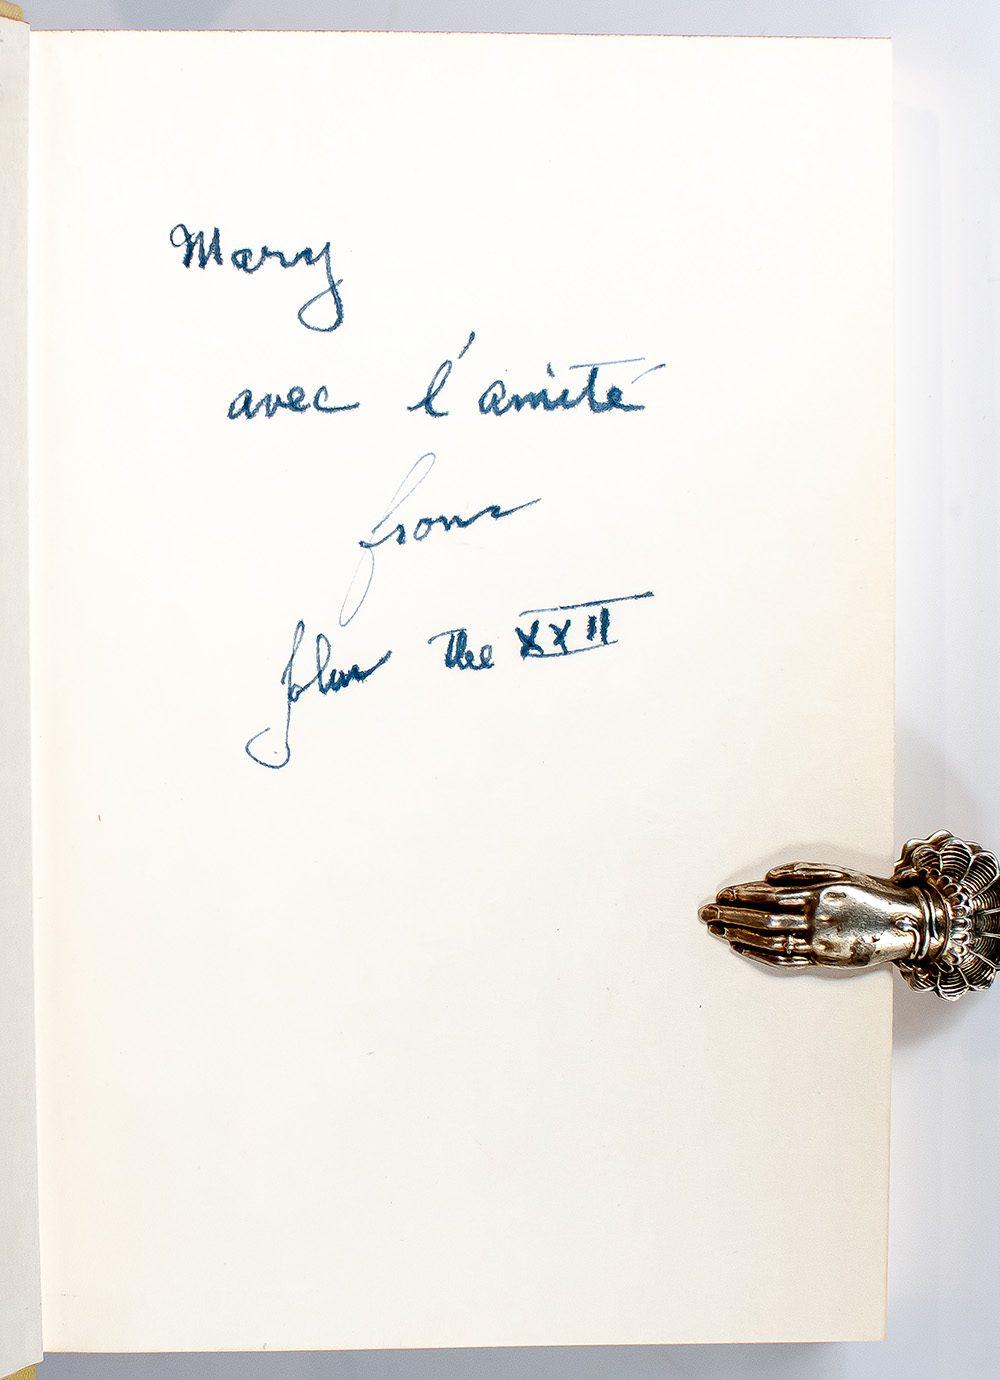 Mary
avec l'amité
from
John the XXII